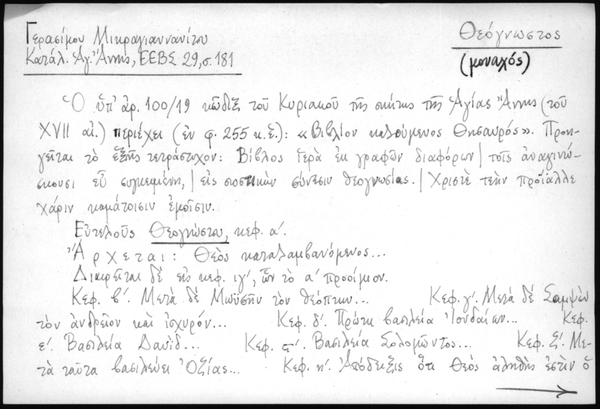 Γερασίμου Μικραγιαννανίτου
Κατάλ. Ἁγ. Ἄννης, ΕΕΒΣ 29, σ. 181
Θεόγνωστος
(μοναχός)
Ὁ ὑπ' ἀρ. 100/19 κῶδιξ τοῦ Κυριακοῦ τῆς σκήτης τῆς Ἁγίας Ἄννης (τοῦ
XVII αἰ.) περιέχει (ἐν φ. 255 κ.ἑ.): «Βιβλίον καλούμενος Θησαυρός». Προη-
γεῖται τὸ ἑξῆς τετράστιχον: Βίβλος ἱερὰ ἐκ γραφῶν διαφόρων | τοῖς ἀναγινώ-
σκουσι εὖ | εἰς σύνεσιν θεογνωσίας. | Χριστὲ τεὴν προΐαλλε
χάριν καμάτοισιν ἐμοῖσιν.
Εὐτελοῦς Θεογνώστου, κεφ. α'.
Ἄρχεται: Θεὸς καταλαμβανόμενος...
Διαιρεῖται δὲ εἰς κεφ. ιγ', ὧν τὸ α' προοίμιον.
Κεφ. β'. Μετὰ δὲ Μωϋσῆν τὸν θεόπτην... Κεφ. γ'. Μετὰ δὲ Σαμψὼν
τὸν ἀνδρεῖον καὶ ἰσχυρόν... Κεφ. δ'. Πρώτη βασιλεία Ἰουδαίων... Κεφ.
ε'. Βασιλεία Δαυῒδ... Κεφ. ς'. Βασιλεία Σολομῶντος... Κεφ. ζ'. Με-
τὰ ταῦτα βασιλεύει Ὀζίας... Κεφ. η'. Ἀπόδειξις ὅτι Θεὸς ἀληθής ἐστιν ὁ